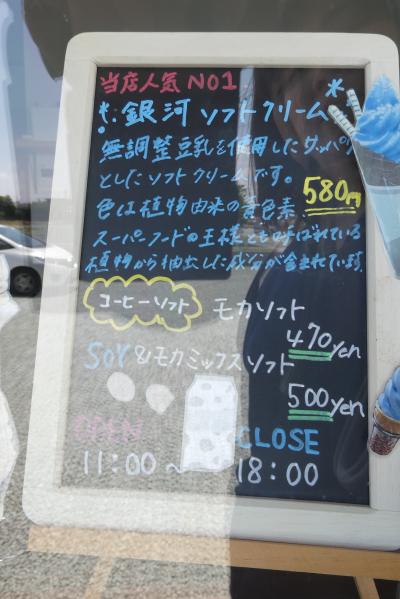 当店人気 NO1
銀河ソフトクリーム
無調整豆乳を使用したサッパリ
としたソフトクリームです。
580円
色は植物由来の青色素
スーパーフードの王様とも呼ばれている
植物から抽出した成分が含まれています。
コーヒーソフト モカソフト
470yen
SOY&モカミックスソフト
500yen
OPEN CLOSE
11:00～ 18:00